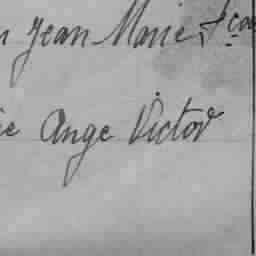 Jean Marie, fçoi
Ange Victor